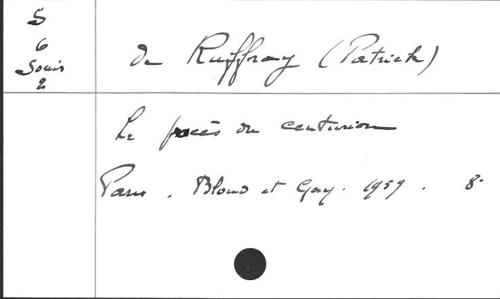 S
6
Sours
2
de Ruffray (Patrick)
Le procès du centurion
Paris. Bloud et Gay. 1959. 8°